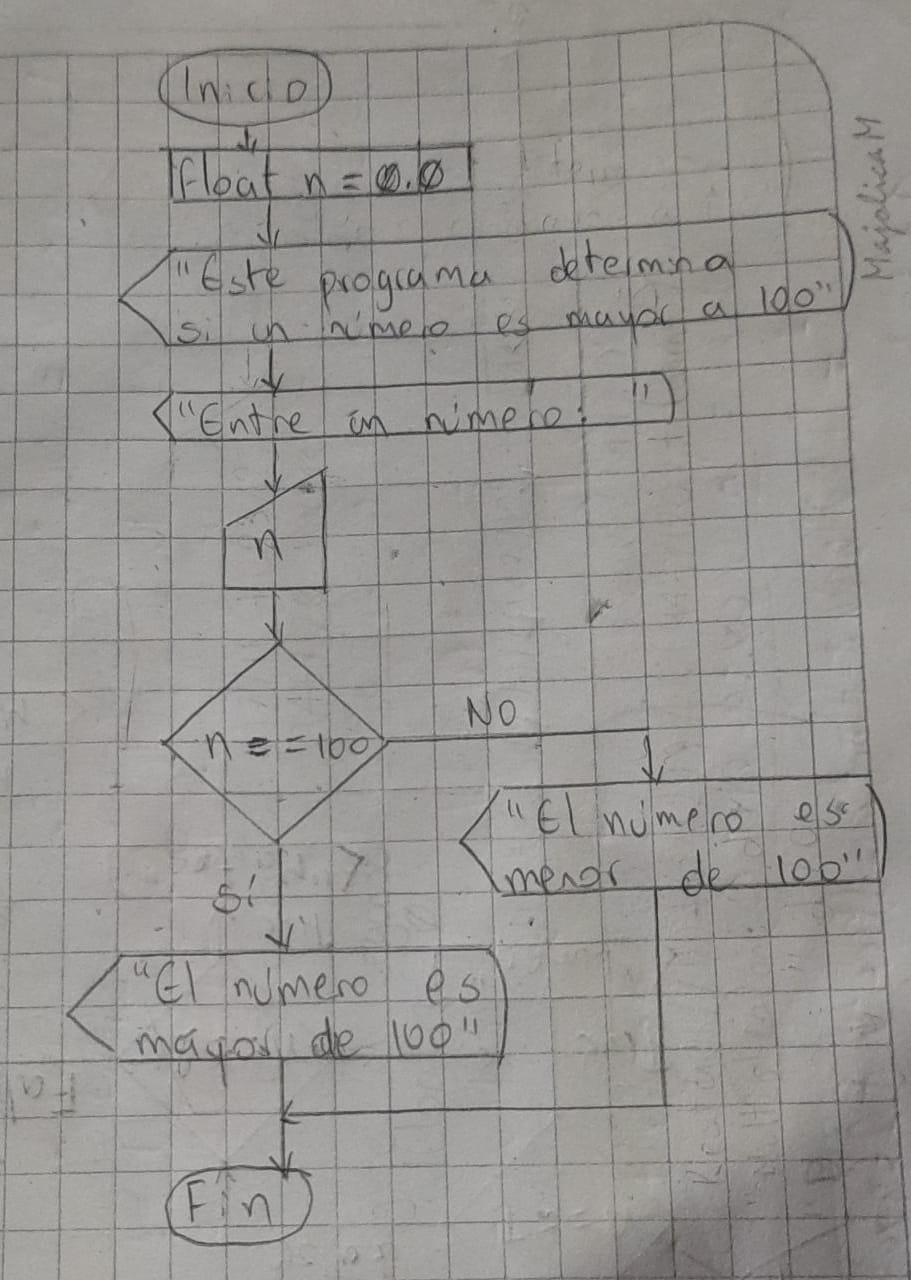 Inicio
float n = 0.0
"Este programa determina
si un número es mayor a 100"
"Entre un número: "
n
n == 100
NO
"El número es
menor de 100"
Sí
"El número es
mayor de 100"
Fin
Majolica M